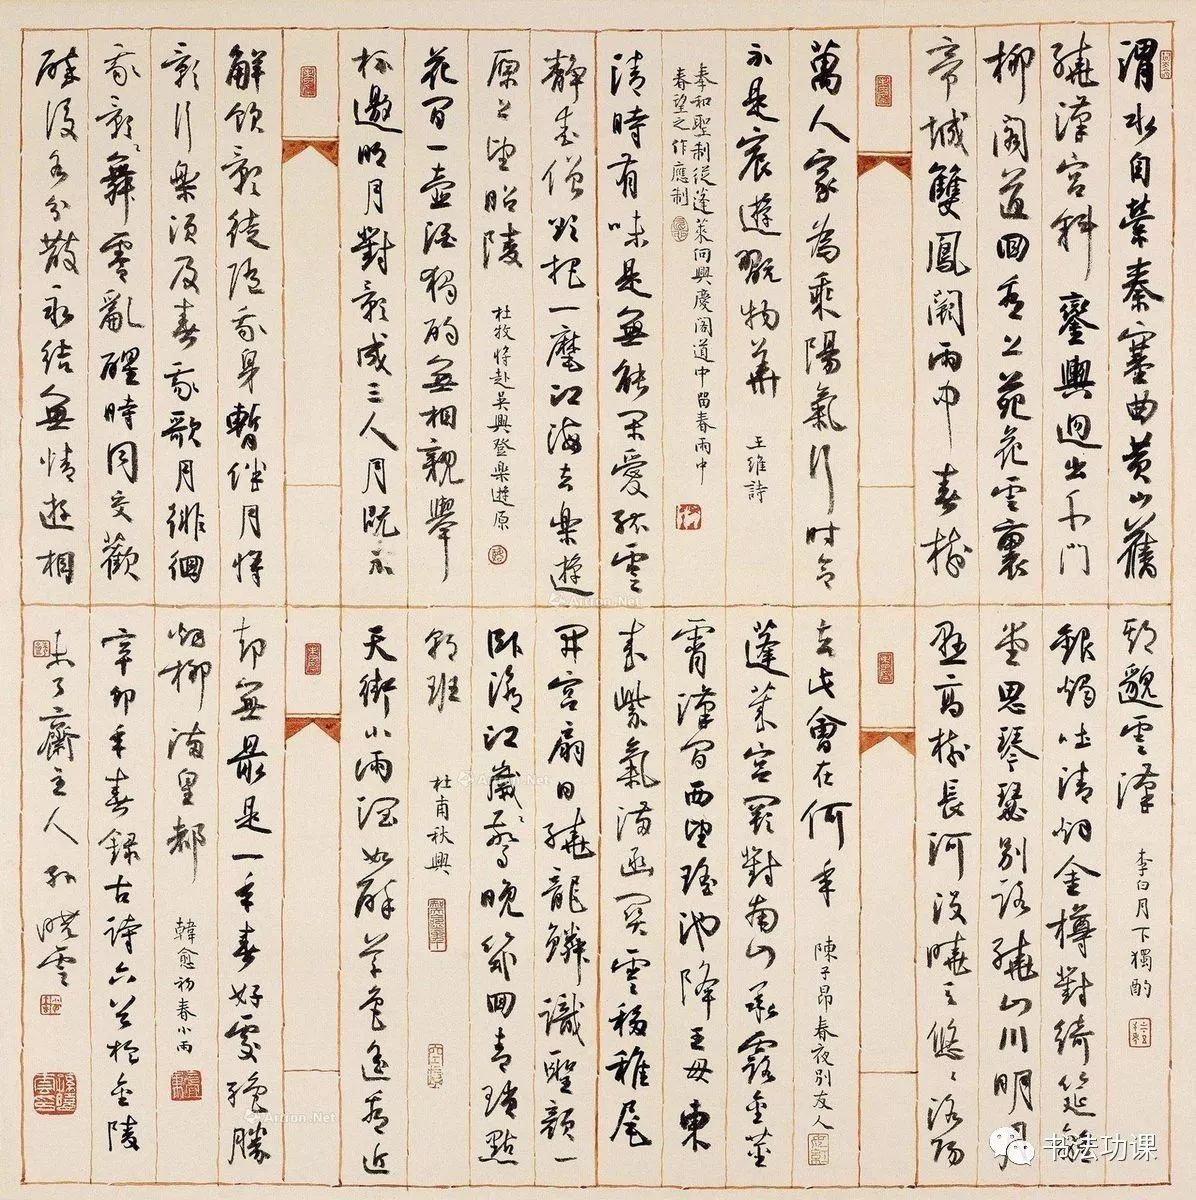 渭水自縈秦塞曲黄山舊
繞漢宮斜鑾輿迥出千門
柳閣道回看上苑花雲裏
帝城雙鳳闕雨中春樹
萬人家為乘陽氣行時令
不是宸遊翫物華 王維詩
奉和聖制從蓬萊向興慶閣道中留春雨中
春望之作應制
清時有味是無能閑愛孤雲
靜愛僧欲把一麾江海去樂遊
原上望昭陵 杜牧將赴吳興登樂遊原
花間一壺酒獨酌無相親舉
杯邀明月對影成三人月既不
解飲影徒隨我身暫伴月將
影行樂須及春我歌月徘徊
我影舞零亂醒時同交歡
醉後各分散永結無情遊相
期邈雲漢 李白月下獨酌
銀燭吐清烟金樽對綺筵離
堂思琴瑟別路繞山川明月
懸高樹長河没曉天悠〻洛陽
去此會在何年 陳子昂春夜別友人
蓬萊宮闕對南山承露金莖
霄漢間西望瑤池降王母東
來紫氣滿函關雲移雉尾
開宮扇日繞龍鱗識聖顏一
臥滄江歲驚晚幾回青瑣點
朝班 杜甫秋興
天街小雨潤如酥草色遙看近
却無最是一年春好處絕勝
烟柳滿皇都 韓愈初春小雨
辛卯年春録古詩六首於金陵
未了齋主人孫曉雲
Artron.Net
Artron.Net
Artron.Net
书法功课